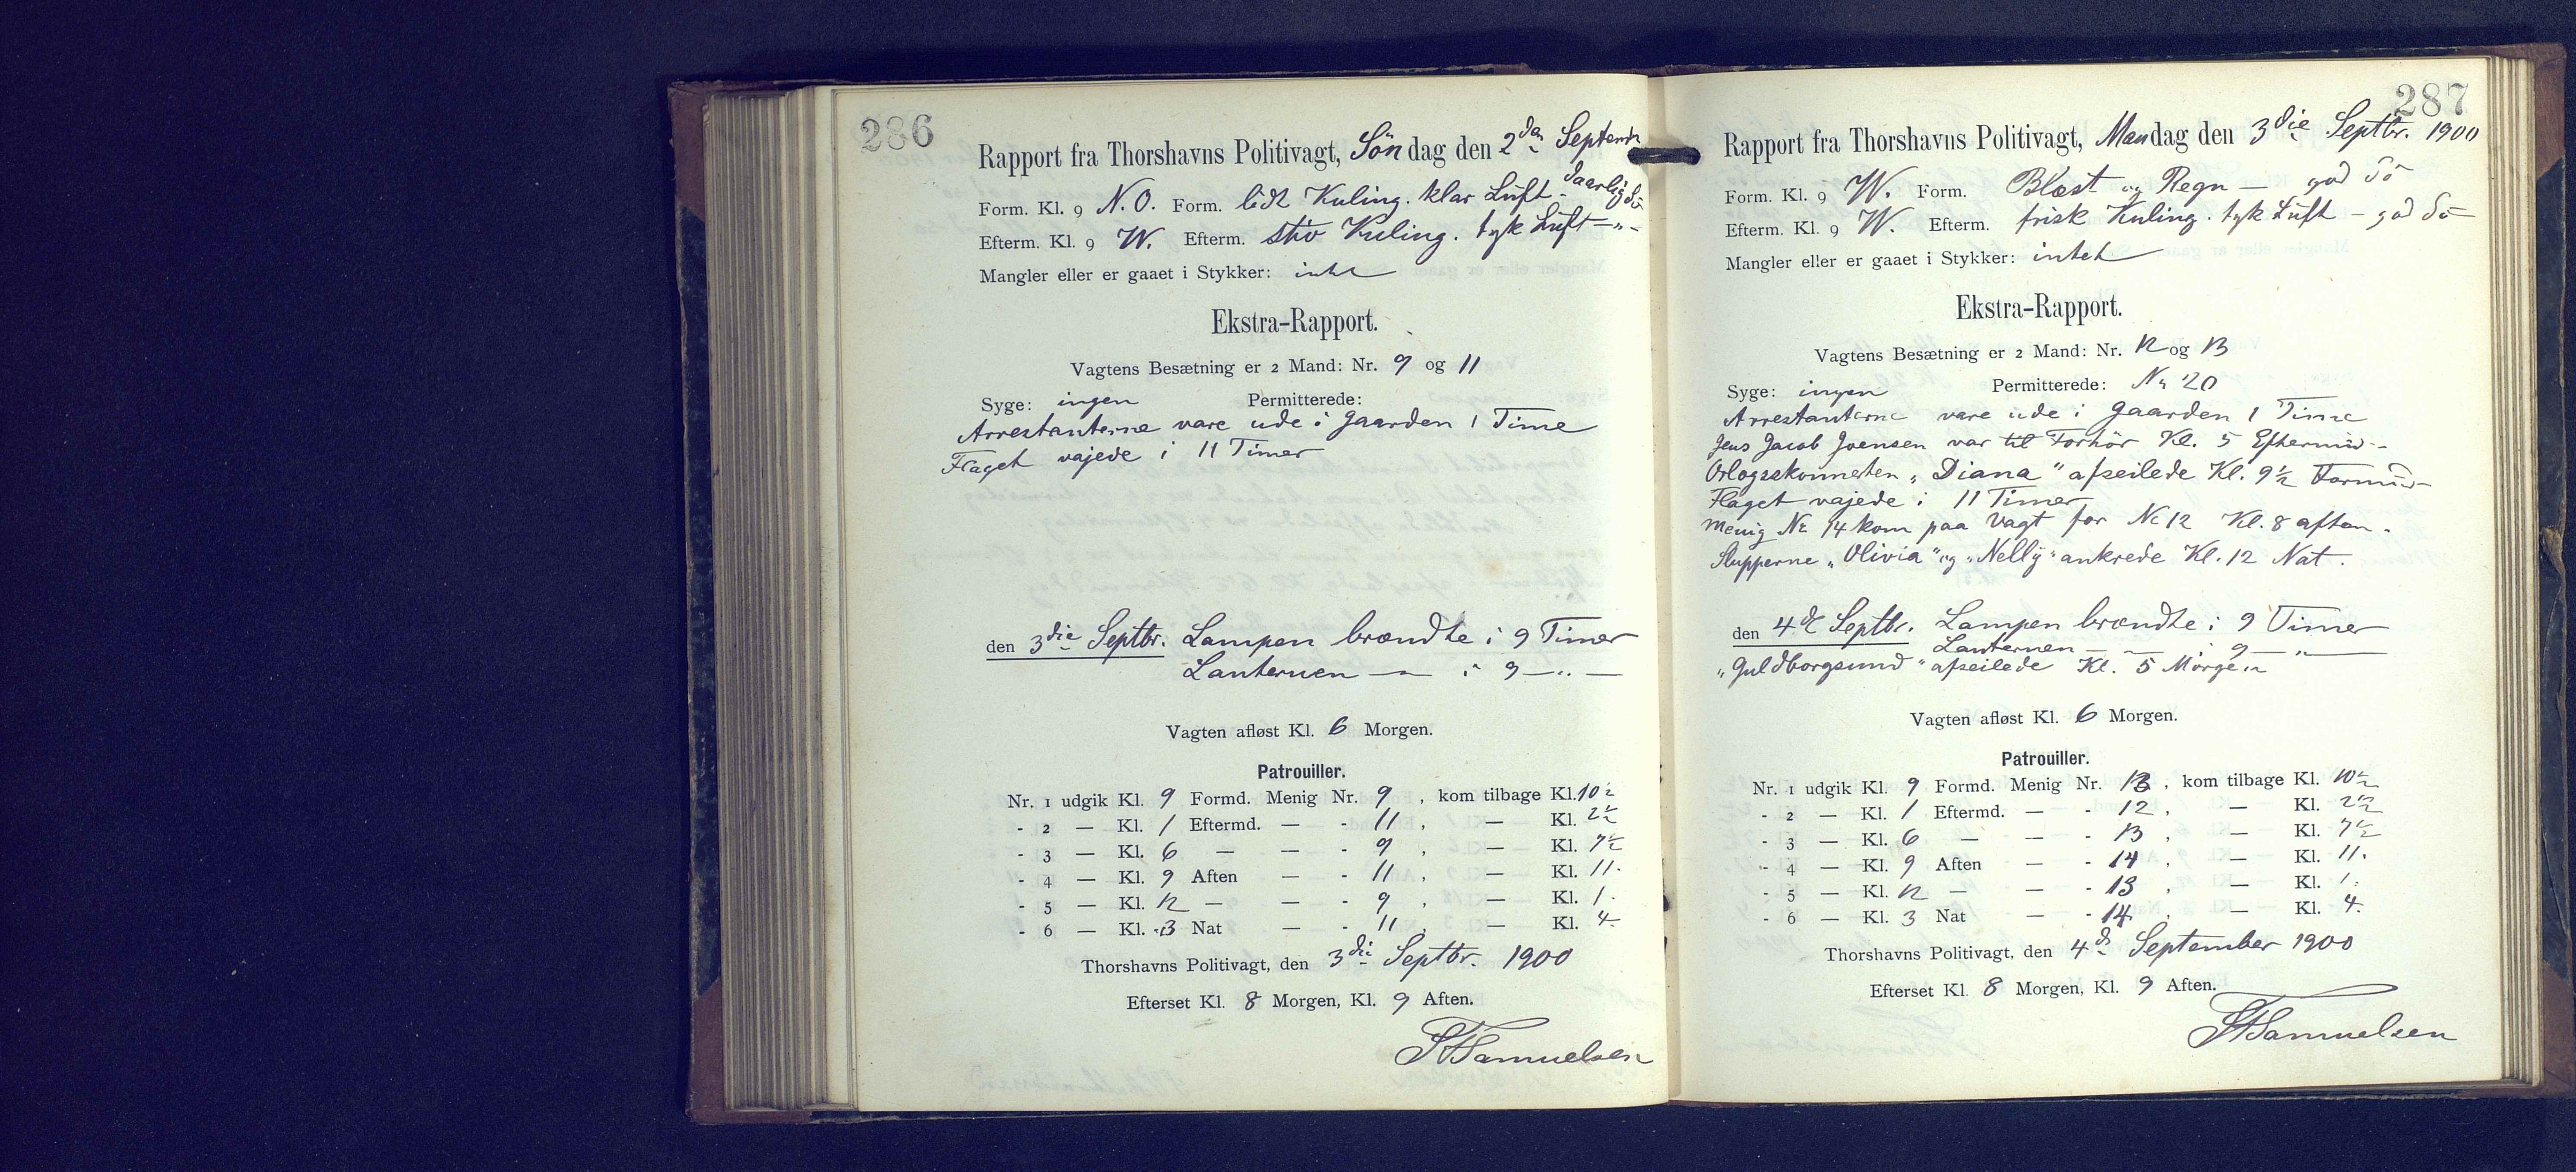 286
Rapport fra Thorshavns Politivagt, Søndag den 2den Septembr
Form. Kl. 9 N.O. Form. lidt Kuling. klar Luft - daarlig Sö
Efterm. Kl. 9 W. Efterm. stiv Kuling. tyk Luft — " -
Mangler eller er gaaet i Stykker: intet
Ekstra-Rapport.
Vagtens Besætning er 2 Mand: Nr. 9 og 11
Syge: ingen Permitterede:
Arrestanterne vare ude i Gaarden 1 Time
Flaget vajede i 11 Timer
den 3die Septbr. Lampen brændte i 9 Timer
Lanternen — " — i 9 — " —
Vagten afløst Kl. 6 Morgen.
Patrouiller.
Nr. 1 udgik Kl. 9 Formd. Menig Nr. 9 , kom tilbage Kl. 10½
- 2 — Kl. 1 Eftermd. — - 11 , — Kl. 2½
- 3 — Kl. 6 — — - 9 , — Kl. 7½
- 4 — Kl. 9 Aften — - 11 , — Kl. 11.
- 5 — Kl. 12 — — - 9 , — Kl. 1.
- 6 — Kl. 3 Nat — - 11 , — Kl. 4.
Thorshavns Politivagt, den 3die Septbr. 1900
Efterset Kl. 8 Morgen, Kl. 9 Aften.
Samuelsen
287
Rapport fra Thorshavns Politivagt, Mandag den 3die Septbr. 1900
Form. Kl. 9 W. Form. Blæst og Regn — god Sö
Efterm. Kl. 9 W. Efterm. frisk Kuling. tyk Luft — god Sö
Mangler eller er gaaet i Stykker: intet
Ekstra-Rapport.
Vagtens Besætning er 2 Mand: Nr. 12 og 13
Syge: ingen Permitterede: Nr 20
Arrestanterne vare ude i Gaarden 1 Time
Jens Jacob Joensen var til Forhör Kl. 5 Eftermid-
Orlogsskonnerten „Diana" afseilede Kl. 9½ Formid-
Flaget vajede i 11 Timer
Menig Nr 14 kom paa Vagt for Nr 12 Kl. 8 aften.
Slupperne „Olivia" og „Nelly" ankrede Kl. 12 Nat.
den 4de Septbr. Lampen brændte i 9 Timer
Lanternen — " — i 9 — " —
„Guldborgsund" afseilede Kl. 5 Morgen
Vagten afløst Kl. 6 Morgen.
Patrouiller.
Nr. 1 udgik Kl. 9 Formd. Menig Nr. 13 , kom tilbage Kl. 10½
- 2 — Kl. 1 Eftermd. — - 12 , — Kl. 2½
- 3 — Kl. 6 — — - 13 , — Kl. 7½
- 4 — Kl. 9 Aften — - 14 , — Kl. 11.
- 5 — Kl. 12 — — - 13 , — Kl. 1.
- 6 — Kl. 3 Nat — - 14 , — Kl. 4.
Thorshavns Politivagt, den 4de September 1900
Efterset Kl. 8 Morgen, Kl. 9 Aften.
Samuelsen